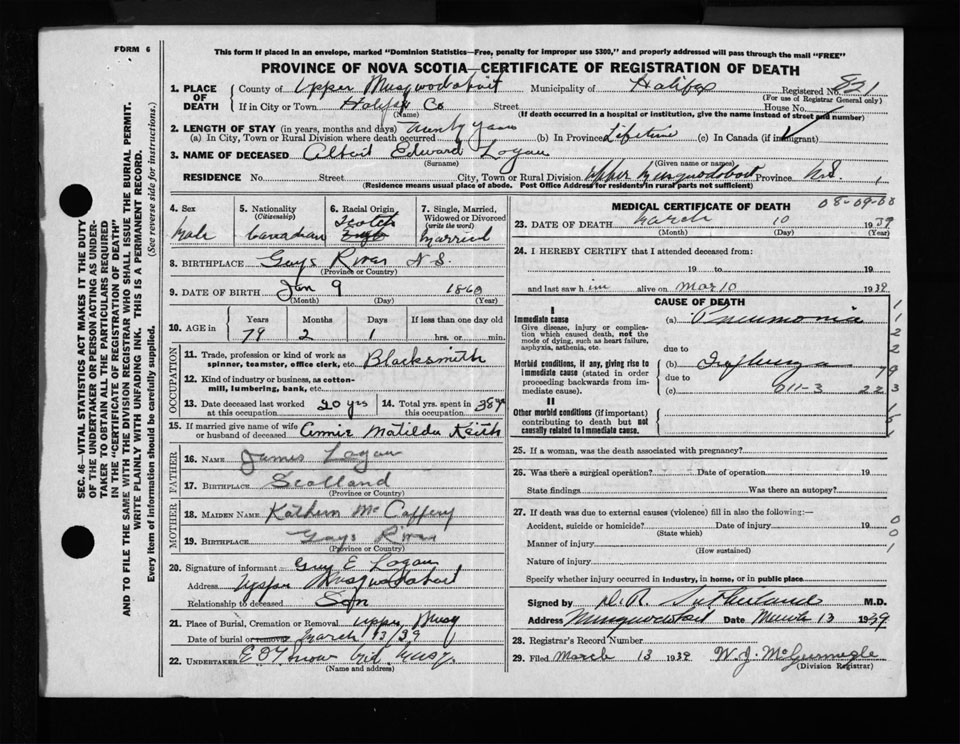 FORM 6
This form if placed in an envelope, marked "Dominion Statistics—Free, penalty for improper use $300," and properly addressed will pass through the mail "FREE"
PROVINCE OF NOVA SCOTIA—CERTIFICATE OF REGISTRATION OF DEATH
SEC. 46—VITAL STATISTICS ACT MAKES IT THE DUTY
OF THE UNDERTAKER OR PERSON ACTING AS UNDER-
TAKER TO OBTAIN ALL THE PARTICULARS REQUIRED
IN THE "CERTIFICATE OF REGISTRATION OF DEATH"
AND TO FILE THE SAME WITH THE DIVISION REGISTRAR WHO SHALL ISSUE THE BURIAL PERMIT.
WRITE PLAINLY WITH UNFADING INK. THIS IS A PERMANENT RECORD.
Every item of information should be carefully supplied. (See reverse side for instructions.)
1. PLACE OF DEATH
County of Upper Musquodoboit Municipality of Halifax Registered No. 821
(For use of Registrar General only)
If in City or Town Halifax Co Street House No.
(Name) (If death occurred in a hospital or institution, give the name instead of street and number)
2. LENGTH OF STAY (in years, months and days)
(a) In City, Town or Rural Division where death occurred (b) In Province Lifetime (c) In Canada (if immigrant)
3. NAME OF DECEASED Albert Edward Logan
(Surname) (Given name or names)
RESIDENCE No. Street City, Town or Rural Division Upper Musquodoboit Province N.S.
(Residence means usual place of abode. Post Office Address for residents in rural parts not sufficient)
4. Sex Male
5. Nationality (Citizenship) Canadian
6. Racial Origin Scotch
7. Single, Married, Widowed or Divorced (write the word) Married
8. BIRTHPLACE Gays River N.S.
(Province or Country)
9. DATE OF BIRTH Jan 9 1860
(Month) (Day) (Year)
10. AGE in Years Months Days If less than one day old
79 2 1 hrs. or min.
OCCUPATION
11. Trade, profession or kind of work as spinner, teamster, office clerk, etc. Blacksmith
12. Kind of industry or business, as cotton-mill, lumbering, bank, etc.
13. Date deceased last worked at this occupation 20 yrs
14. Total yrs. spent in this occupation 38 yrs
15. If married give name of wife or husband of deceased Annie Matilda Keith
FATHER
16. NAME James Logan
17. BIRTHPLACE Scotland
(Province or Country)
MOTHER
18. MAIDEN NAME Kathern McCaffery
19. BIRTHPLACE Gays River
(Province or Country)
20. Signature of informant Guy E Logan
Address Upper Musquodoboit
Relationship to deceased Son
21. Place of Burial, Cremation or Removal Upper Musq
Date of burial or removal March 13/39
22. UNDERTAKER
(Name and address)
MEDICAL CERTIFICATE OF DEATH
08-09-08
23. DATE OF DEATH March 10 1939
(Month) (Day) (Year)
24. I HEREBY CERTIFY that I attended deceased from:
19 to 19
and last saw him alive on Mar 10 1939
CAUSE OF DEATH
I
Immediate cause (a) Pneumonia
Give disease, injury or complication which caused death, not the mode of dying, such as heart failure, asphyxia, asthenia, etc.
due to
Morbid conditions, if any, giving rise to immediate cause (stated in order proceeding backwards from immediate cause).
(b) Influenza
due to
(c) 011-3 223
II
Other morbid conditions (if important) contributing to death but not causally related to immediate cause.
25. If a woman, was the death associated with pregnancy?
26. Was there a surgical operation? Date of operation 19
State findings Was there an autopsy?
27. If death was due to external causes (violence) fill in also the following:—
Accident, suicide or homicide? Date of injury 19
(State which)
Manner of injury
(How sustained)
Nature of injury
Specify whether injury occurred in industry, in home, or in public place
Signed by D. R. Sutherland M.D.
Address Musquodoboit Date March 13 1939
28. Registrar's Record Number
29. Filed March 13 1939
(Division Registrar)